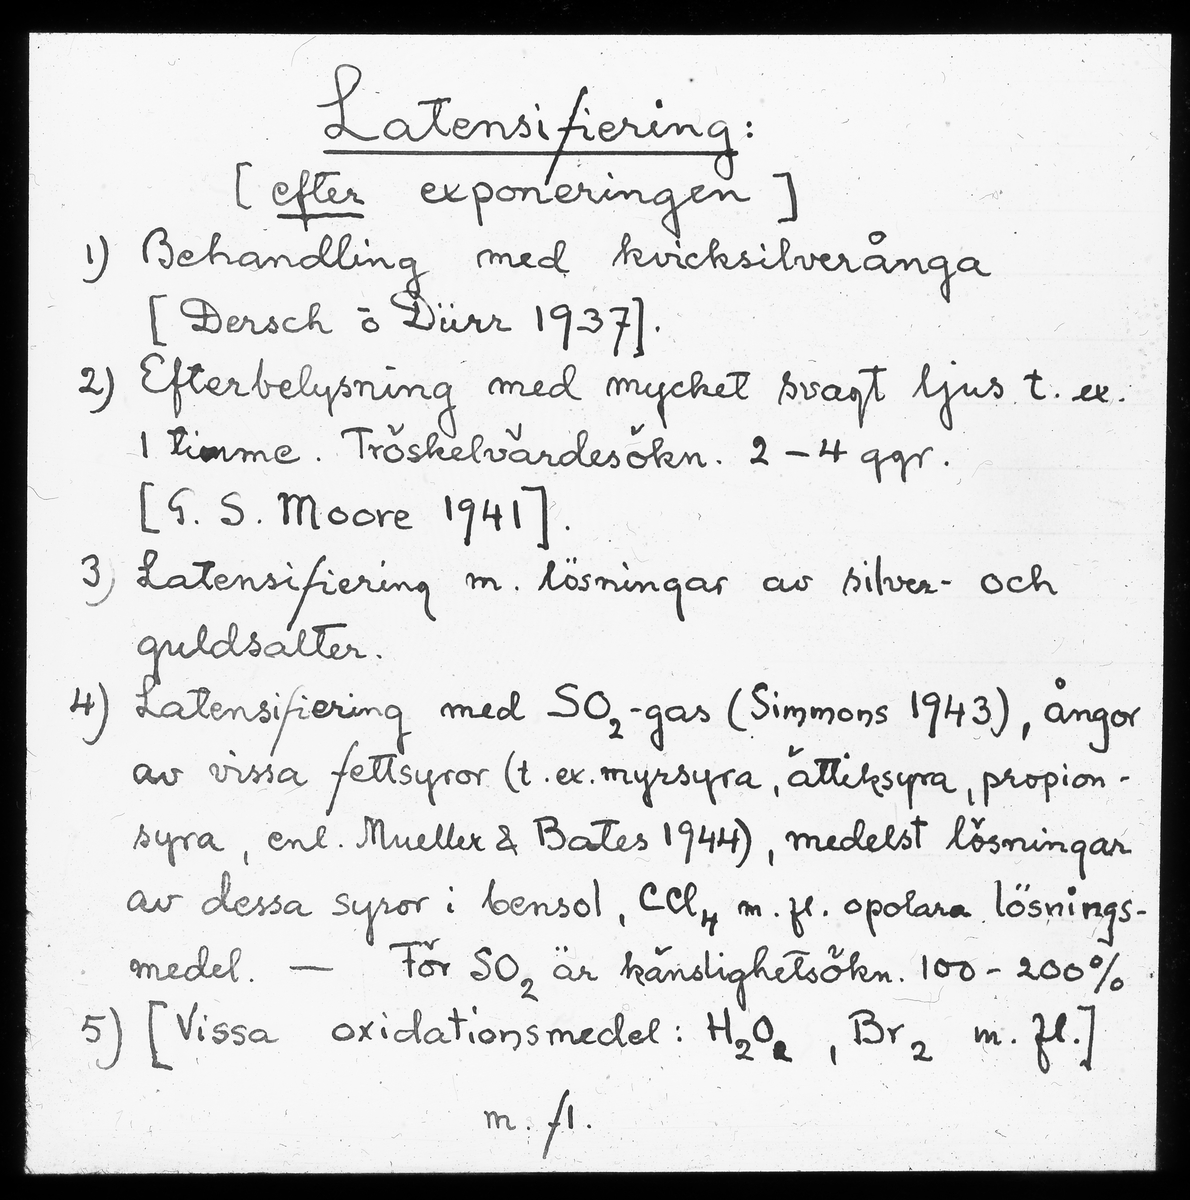 Latensifiering:
[ efter exponeringen ]
1) Behandling med kvicksilverånga
[ Dersch o Dürr 1937].
2) Efterbelysning med mycket svagt ljus t. ex.
1 timme. Tröskelvärdesökn. 2 – 4 ggr.
[G. S. Moore 1941].
3) Latensifiering m. lösningar av silver- och
guldsalter.
4) Latensifiering med SO₂-gas (Simmons 1943), ångor
av vissa fettsyror (t. ex. myrsyra, ättiksyra, propion-
syra, enl. Mueller & Bates 1944), medelst lösningar
av dessa syror i bensol, CCl₄ m. fl. opolara lösnings-
medel. — För SO₂ är känslighetsökn. 100 - 200%.
5) [Vissa oxidationsmedel: H₂O₂, Br₂ m. fl.]
m. fl.